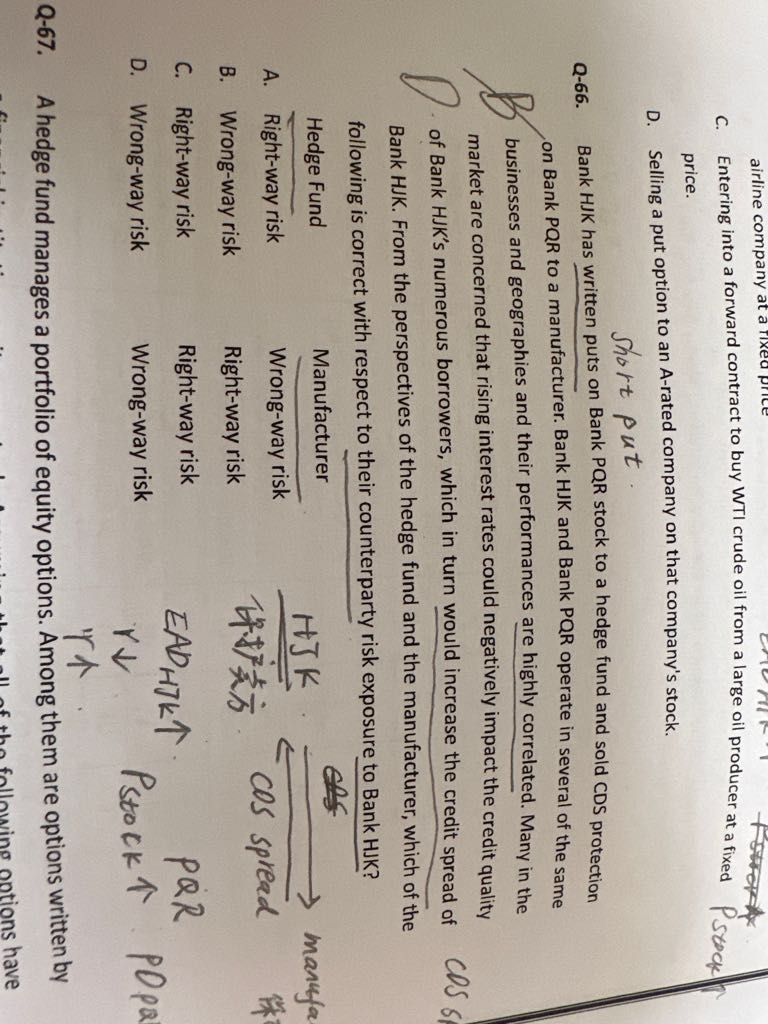 airline company at a fixed price
C. Entering into a forward contract to buy WTI crude oil from a large oil producer at a fixed
price.
D. Selling a put option to an A-rated company on that company's stock.
Pstock↑
short put.
Q-66. Bank HJK has written puts on Bank PQR stock to a hedge fund and sold CDS protection
on Bank PQR to a manufacturer. Bank HJK and Bank PQR operate in several of the same
B
businesses and geographies and their performances are highly correlated. Many in the
market are concerned that rising interest rates could negatively impact the credit quality
D.
of Bank HJK's numerous borrowers, which in turn would increase the credit spread of
CDS
Bank HJK. From the perspectives of the hedge fund and the manufacturer, which of the
following is correct with respect to their counterparty risk exposure to Bank HJK?
Hedge Fund Manufacturer
A. Right-way risk Wrong-way risk
B. Wrong-way risk Right-way risk
C. Right-way risk Right-way risk
D. Wrong-way risk Wrong-way risk
HJK. manufa
保护卖方. CDS spread
EAD HJK↑. PQR
r↓ Pstock↑.
r↑.
Q-67. A hedge fund manages a portfolio of equity options. Among them are options written by
all of the following options have